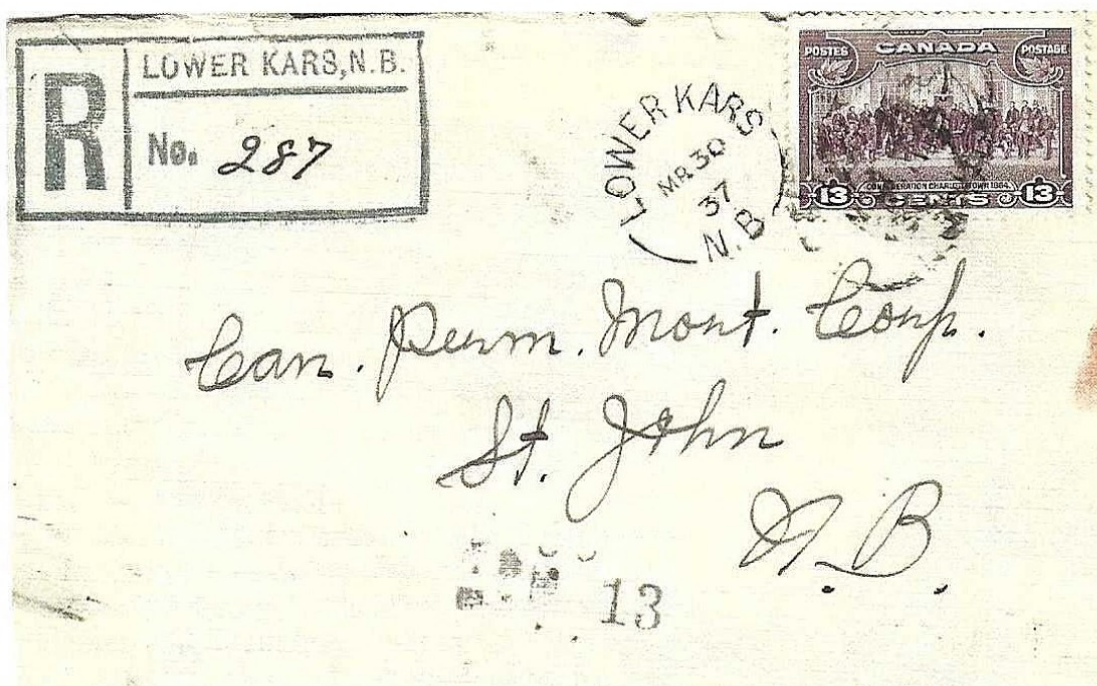 R
LOWER KARS, N.B.
No. 287
LOWER KARS
MR 30
37
N.B
POSTES CANADA POSTAGE
CONFEDERATION CHARLOTTETOWN 1864.
13 CENTS 13
Can. Perm. Mort. Corp.
St. John
N.B.
13